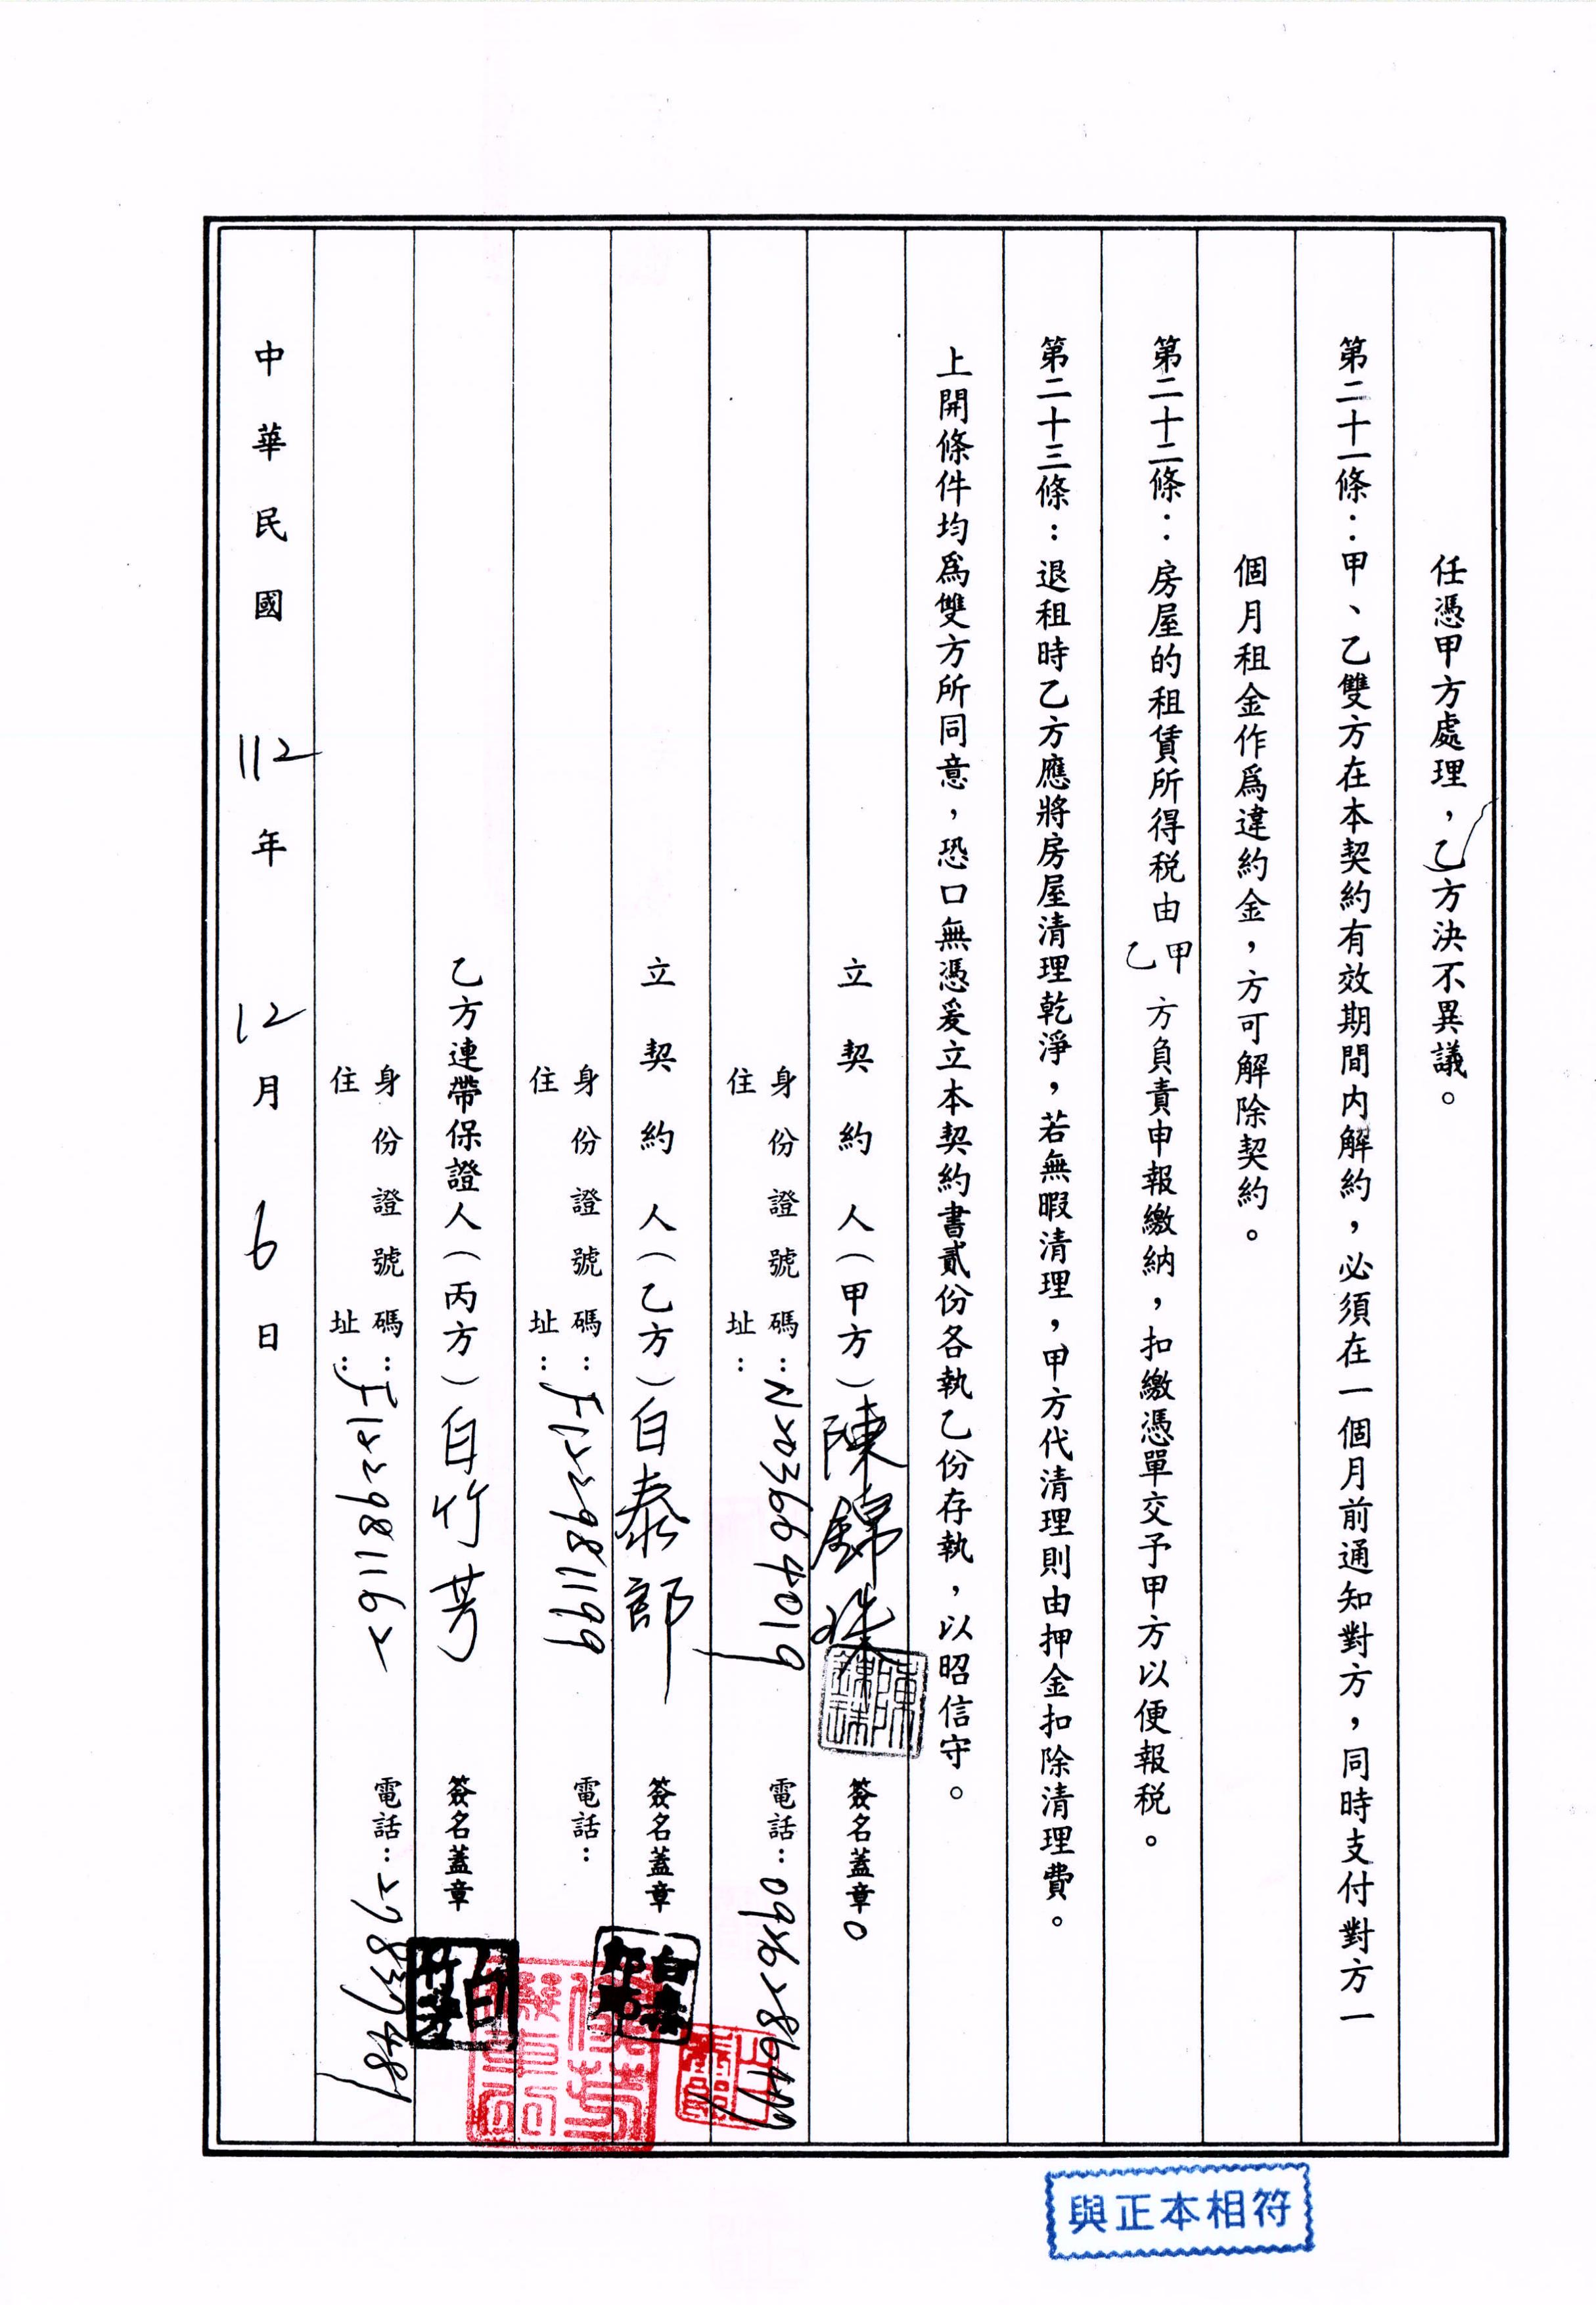 任憑甲方處理，乙方決不異議。
第二十一條：甲、乙雙方在本契約有效期間內解約，必須在一個月前通知對方，同時支付對方一
個月租金作爲違約金，方可解除契約。
第二十二條：房屋的租賃所得稅由甲乙方負責申報繳納，扣繳憑單交予甲方以便報稅。
第二十三條：退租時乙方應將房屋清理乾淨，若無暇清理，甲方代清理則由押金扣除清理費。
上開條件均爲雙方所同意，恐口無憑爰立本契約書貳份各執乙份存執，以昭信守。
立契約人（甲方）陳錦珠 簽名蓋章
身份證號碼：N203664019 電話：
住址：
立契約人（乙方）白泰郎 簽名蓋章
身份證號碼：F122981199 電話：
住址：
乙方連帶保證人（丙方）白竹芳 簽名蓋章
身份證號碼：F122981162 電話：29837481
住址：
中華民國112年12月6日
與正本相符